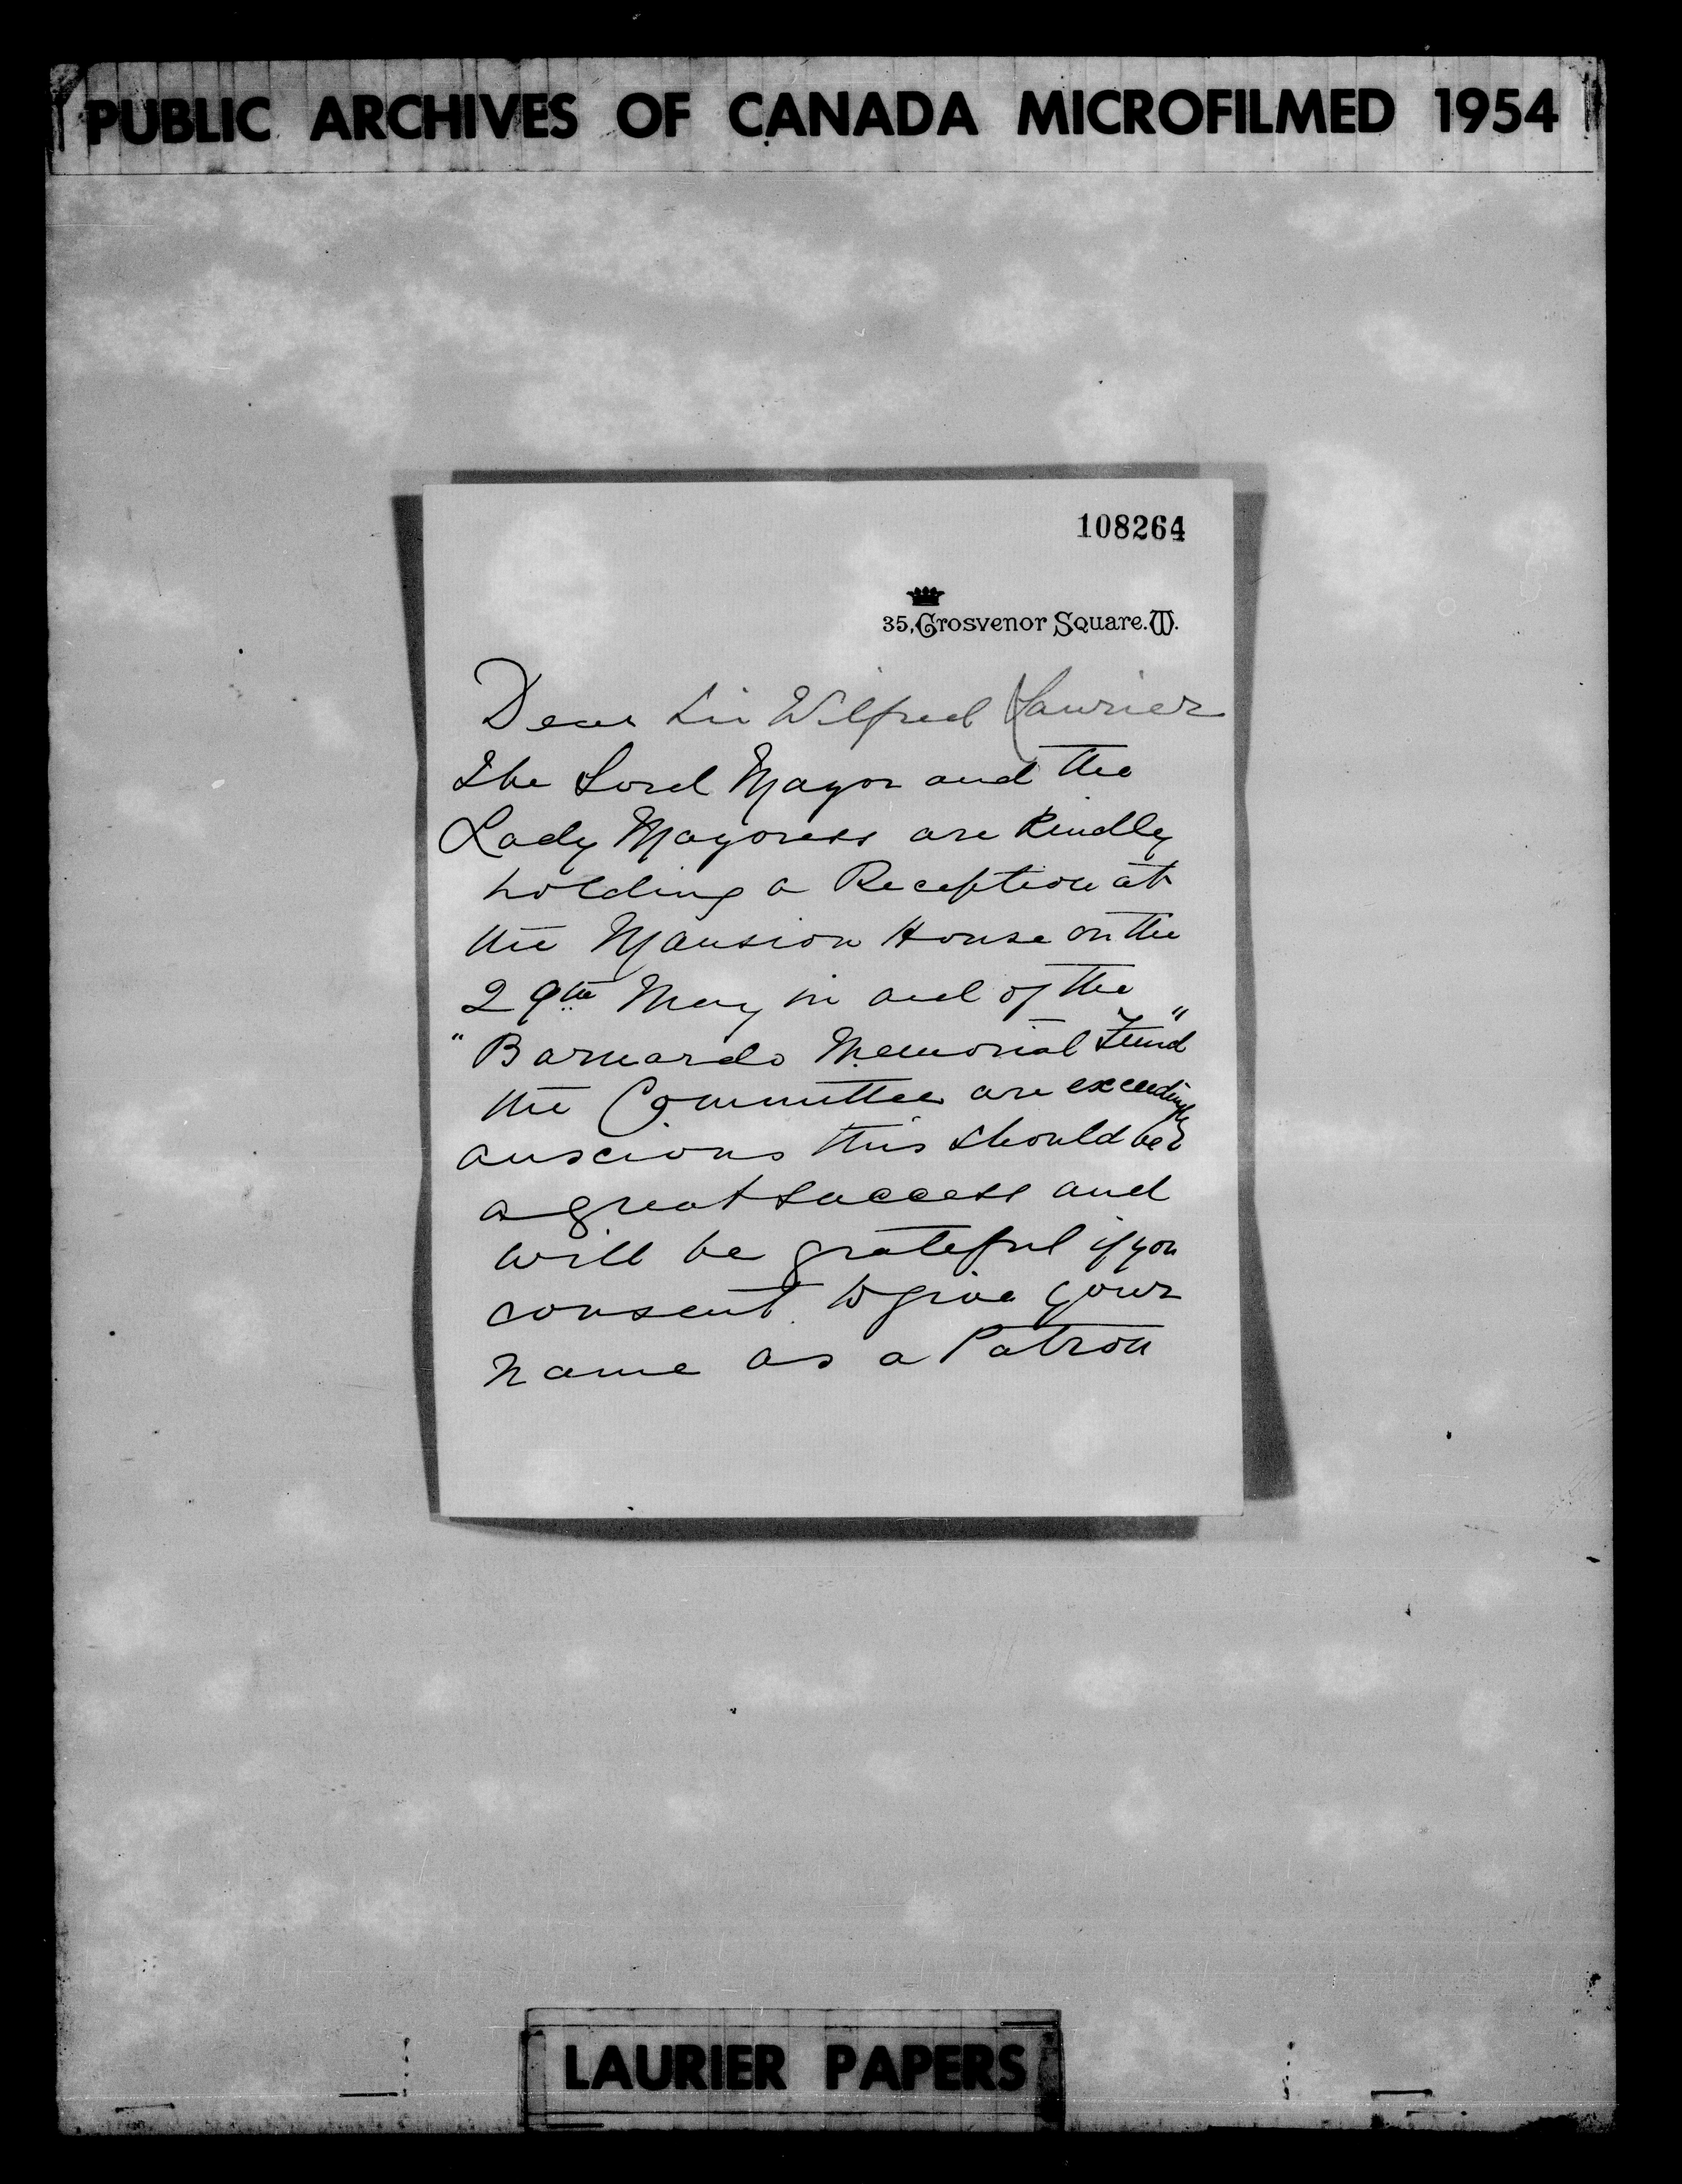 PUBLIC ARCHIVES OF CANADA MICROFILMED 1954
108264
35, Grosvenor Square. W.
Dear Sir Wilfred Laurier
The Lord Mayor and the
Lady Mayoress are Kindly
holding a Reception at
the Mansion House on the
29th May in aid of the
"Barnardo Memorial Fund"
the Committee are exceedingly
anxcious this should be
a great success and
will be grateful if you
consent to give your
name as a Patron
LAURIER PAPERS